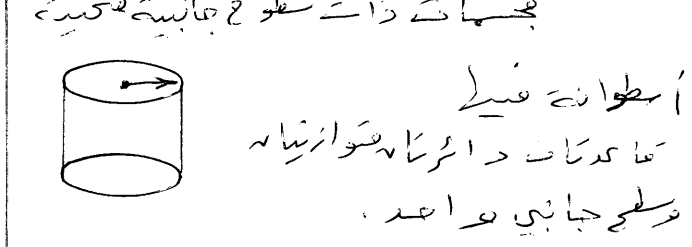 مجسمات ذات سطوح جانبية منحنية
أسطوانة فيها
قاعدتان دائرتان متوازيتان
وسطح جانبي واحد .